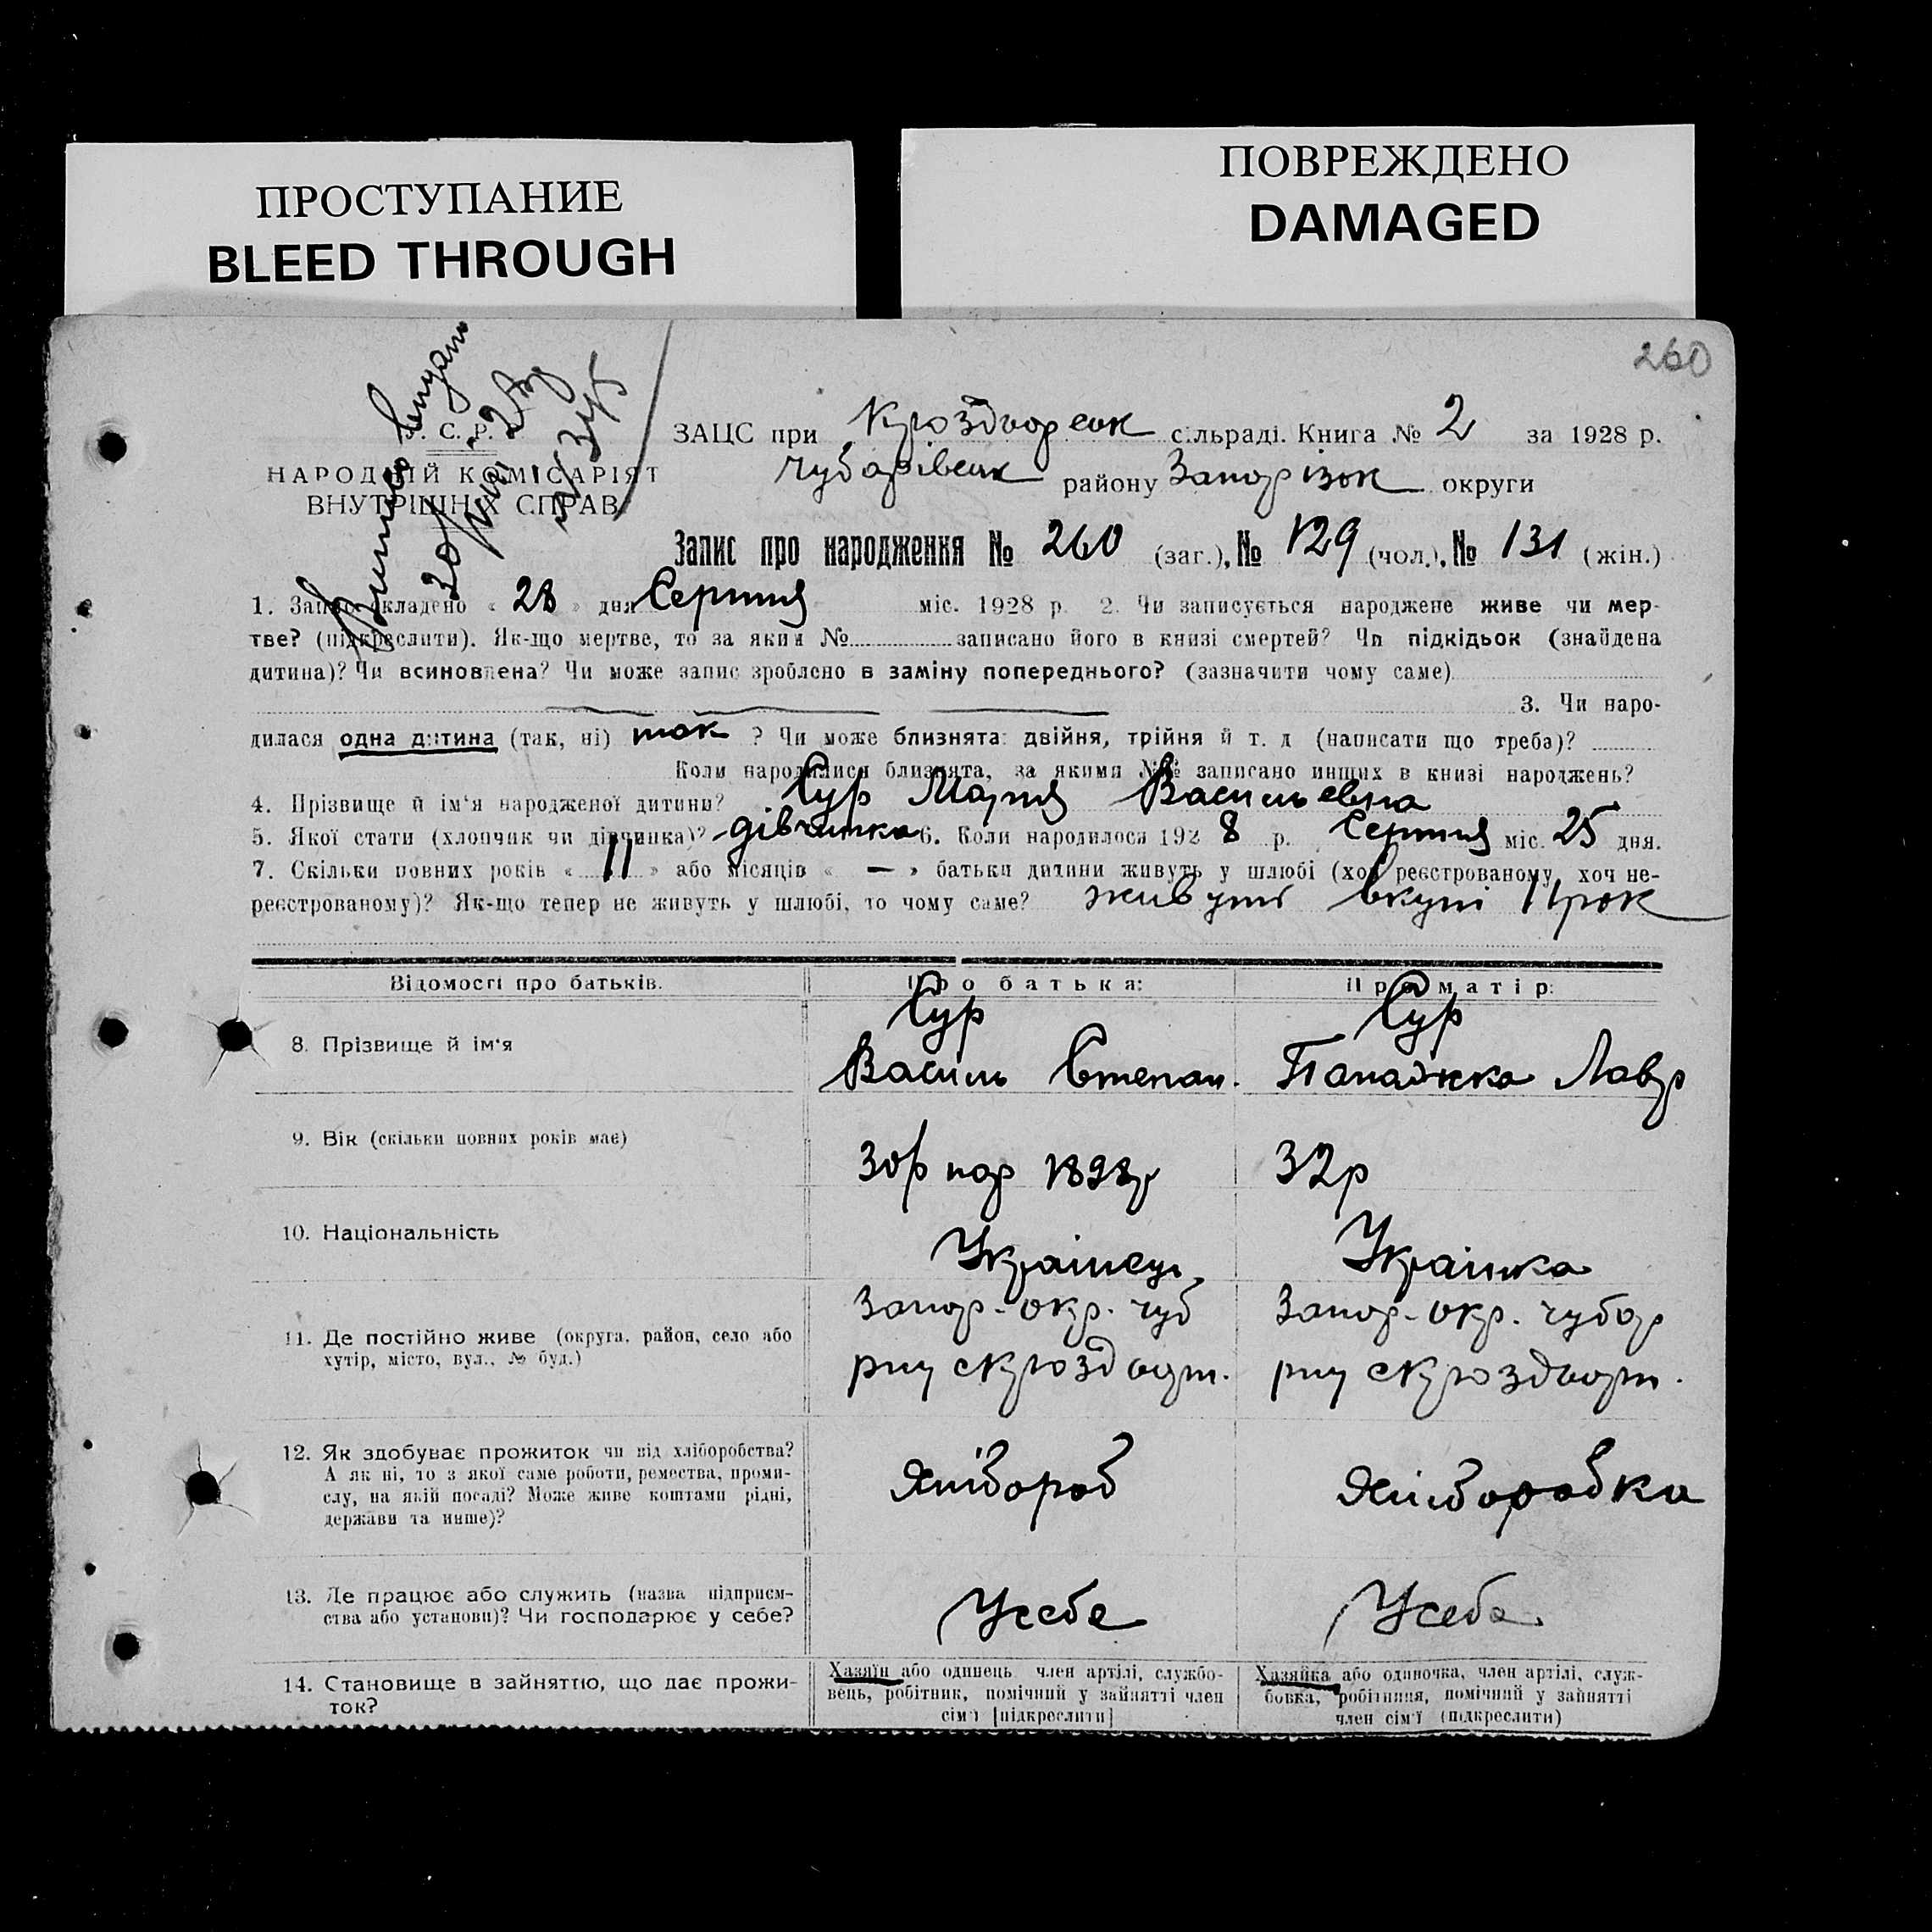 ПРОСТУПАНИЕ
BLEED THROUGH
ПОВРЕЖДЕНО
DAMAGED
260
С. Р. Р.
НАРОДНІЙ КОМІСАРІЯТ
ВНУТРІШНІХ СПРАВ
ЗАЦС при сільраді. Книга № 2 за 1928 р.
Чубарівськ району Запорізьк округи
Запис про народження № 260 (заг.), № 129 (чол.), № 131 (жін.)
1. Запис складено « 28 » дня Серпня міс. 1928 р. 2. Чи записується народжене живе чи мер-
тве? (підкреслити). Як-що мертве, то за яким № записано його в книзі смертей? Чи підкідьок (знайдена
дитина)? Чи всиновлена? Чи може запис зроблено в заміну попереднього? (зазначити чому саме)
3. Чи наро-
дилася одна дитина (так, ні) так ? Чи може близнята: двійня, трійня й т. д (написати що треба)?
Коли народилися близнята, за якими №№ записано инших в книзі народжень?
4. Прізвище й ім'я народженої дитини? Сур Марія Васильевна
5. Якої стати (хлопчик чи дівчинка)? дівчинка 6. Коли народилося 192 8 р. Серпня міс. 25 дня.
7. Скільки повних років « 11 » або місяців « — » батьки дитини живуть у шлюбі (хоч реєстрованому, хоч не-
реєстрованому)? Як-що тепер не живуть у шлюбі, то чому саме? живуть вкупі 11 рок
Відомості про батьків. Про батька: Про матір:
8. Прізвище й ім'я
Сур
Василь Степан.
Сур
Лавр
9. Вік (скільки повних років має)
30р нар 1898р
32р
10. Національність
Украінець
Украінка
11. Де постійно живе (округа, район, село або
хутір, місто, вул., № буд.)
Запор-окр. чуб
Запор-окр. чубар
12. Як здобуває прожиток чи від хліборобства?
А як ні, то з якої саме роботи, ремества, проми-
слу, на якій посаді? Може живе коштами рідні,
держави та инше)?
Хлібороб
Хліборобка
13. Де працює або служить (назва підприєм-
ства або установи)? Чи господарює у себе?
Усебе
Усебе
14. Становище в зайнятю, що дає прожи-
ток?
Хазяїн або одинець член артілі, службо-
вець, робітник, помічний у зайнятті член
сім'ї [підкреслити]
Хазяйка або одиночка, член артілі, служ-
бовка, робітниця, помічний у зайнятті
член сім'ї (підкреслити)